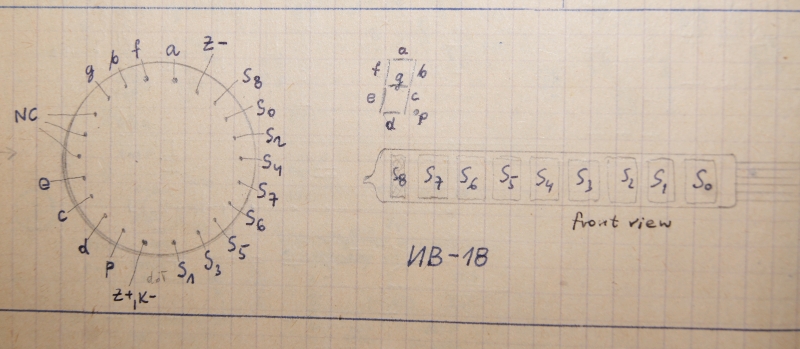 g b f a Z-
S8
S0
S2
S4
S7
S6
S5
S3
S1
Z+,K-
dot
p
d
c
e
NC
a
f g b
e c
d p
S8 S7 S6 S5 S4 S3 S2 S1 S0
front view
ИВ-18